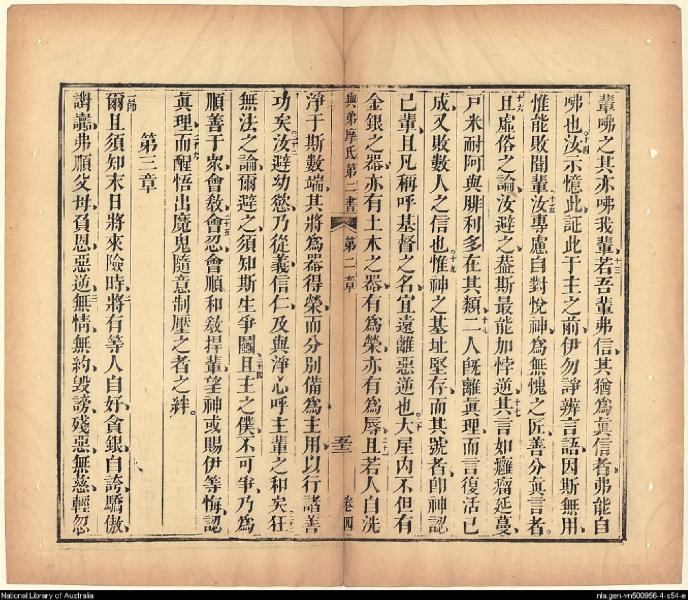 輩咈之其亦咈我輩若吾輩弗信其猶為真信者弗能自
咈也汝示憶此証此于主之前伊勿諍辨言語因斯無用
惟能敗聞輩汝專慮自對悅神為無愧之匠善分真言者
且虛俗之論汝避之葢斯最能加悖逆其言如癰瘤延蔓
戶米耐阿與腓利多在其類二人既離真理而言復活已
成又敗數人之信也惟神之基址堅存而其號者即神認
己輩且凡稱呼基督之名宜遠離惡逆也大屋内不但有
金銀之器亦有土木之器有為榮亦有為辱且若人自洗
與弟摩氏第二書 第二章 五十三 卷四
淨于斯數端其將為器得榮而分别備為主用以行諸善
功矣汝避幼慾乃從義信仁及與淨心呼主輩之和矣狂
無法之論爾避之須知斯生爭鬬且主之僕不可爭乃為
順善于衆會教會忍會順和敎捍輩望神或賜伊等悔認
真理而醒悟出魔鬼隨意制壓之者之絆
第三章
爾且須知末日將來險時將有等人自好貪銀自誇驕傲
謝讟弗順父母負恩惡逆無情無約毁謗殘惡無慈輕忽
National Library of Australia
nla.gen-vn500956-4-s54-e